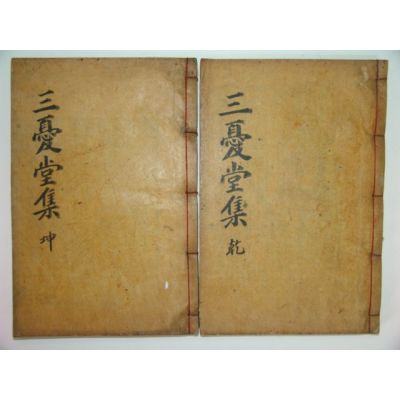 三憂堂集
乾
三憂堂集
坤